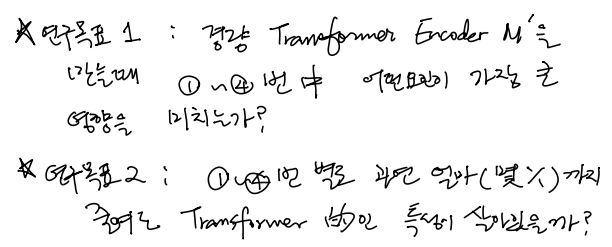 ★ 연구목표 1 : 경량 Transformer Encoder M'을
만들때 ①~④번 中 어떤요인이 가장 큰
영향을 미치는가?
★ 연구목표 2 : ①~④번 별로 과연 얼마(몇%)까지
줄여도 Transformer 的인 특성이 살아있을까?